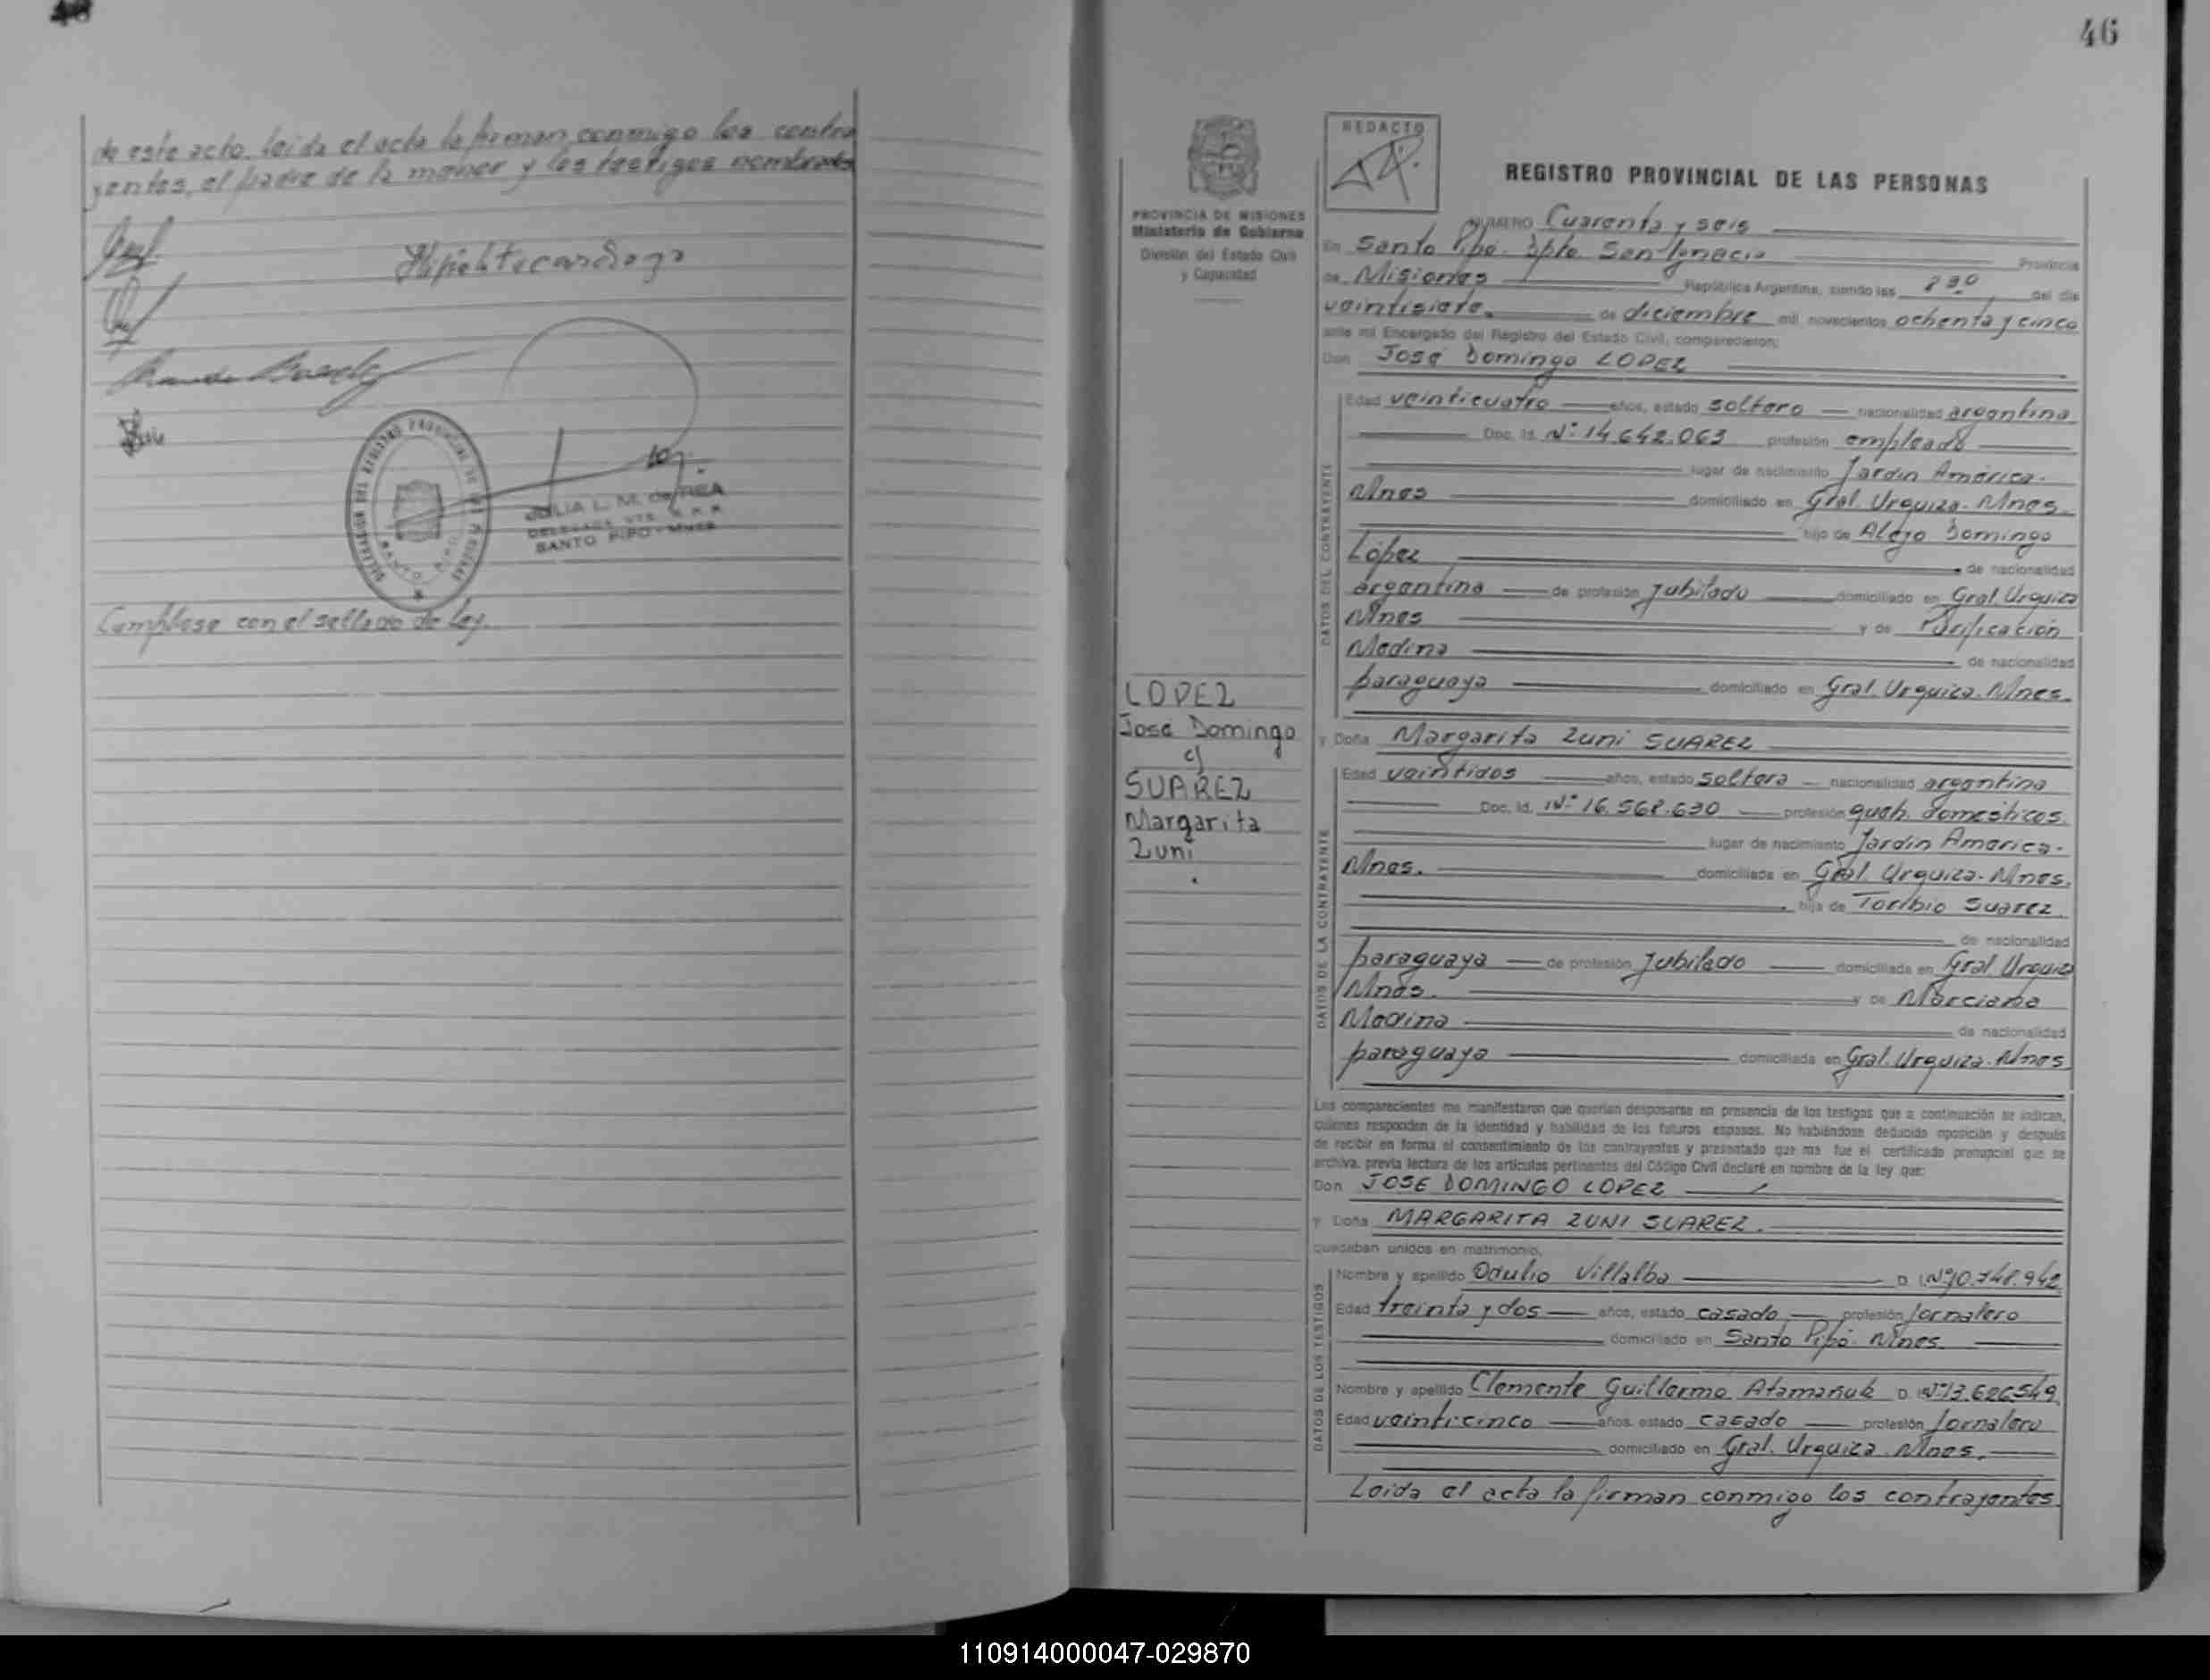 46
de este acto. leida el acta la firman conmigo los contra
yentes, el padre de la menor y los testigos nombrados
JULIA L. M. de REA
SANTO PIPO - Mnes
Cumplese con el sellado de ley.
PROVINCIA DE MISIONES
Ministerio de Gobierno
División del Estado Civil
y Capacidad
REDACTO
REGISTRO PROVINCIAL DE LAS PERSONAS
NUMERO Cuarenta y seis
En Santo Pipó. Dpto San Ignacio Provincia
de Misiones República Argentina, siendo las 830 del día
veintisiete de diciembre mil novecientos ochenta y cinco
ante mi Encargado del Registro del Estado Civil, comparecieron:
Don José Domingo LOPEZ
DATOS DEL CONTRAYENTE
Edad veinticuatro años, estado soltero nacionalidad argentina
Doc. Id. Nº 14.642.063 profesión empleado
lugar de nacimiento Jardin América.
Mnes domiciliado en Gral Urquiza. Mnes.
hijo de Alejo Domingo
López de nacionalidad
argentina de profesión jubilado domiciliado en Gral. Urquiza
Mnes y de Purificación
Medina de nacionalidad
paraguaya domiciliado en Gral. Urquiza. Mnes.
LOPEZ
José Domingo
c/
SUAREZ
Margarita
Zuni
y Doña Margarita Zuni SUAREZ
DATOS DE LA CONTRAYENTE
Edad veintidos años, estado soltera nacionalidad argentina
Doc. Id. Nº 16.568.630 profesión queh. domésticos.
lugar de nacimiento Jardin America.
Mnes. domiciliada en Gral Urquiza. Mnes.
hija de Toribio Suarez
de nacionalidad
paraguaya de profesión jubilado domiciliada en Gral Urquiza
Mnes. y de Marciana
Medina de nacionalidad
paraguaya domiciliada en Gral. Urquiza. Mnes
Los comparecientes me manifestaron que querían desposarse en presencia de los testigos que a continuación se indican,
quienes responden de la identidad y habilidad de los futuros esposos. No habiéndose deducido oposición y después
de recibir en forma el consentimiento de los contrayentes y presentado que me fue el certificado prenupcial que se
archiva, previa lectura de los artículos pertinentes del Código Civil declaré en nombre de la ley que:
Don JOSE DOMINGO LOPEZ
y Doña MARGARITA ZUNI SUAREZ.
quedaban unidos en matrimonio.
DATOS DE LOS TESTIGOS
Nombre y apellido Odulio Villalba D. I. Nº 10.748.942
Edad treinta y dos años, estado casado profesión jornalero
domiciliado en Santo Pipó. Mnes.
Nombre y apellido Clemente Guillermo Atamañuk D. I. Nº 13.626.549
Edad veinticinco años, estado casado profesión jornalero
domiciliado en Gral. Urquiza. Mnes.
Leida el acta la firman conmigo los contrayentes
110914000047-029870